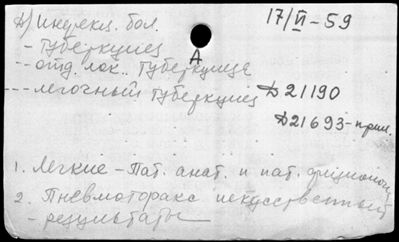 А) Инфекц. бол. 17/VI-59
- Туберкулез
А
-- отд. лок. Туберкулеза
--- легочный туберкулез Д 21190
Д 21693-прил.
1. Легкие - Пат. анат. и пат. физиология
2. Пневмоторакс искусственный
- результаты